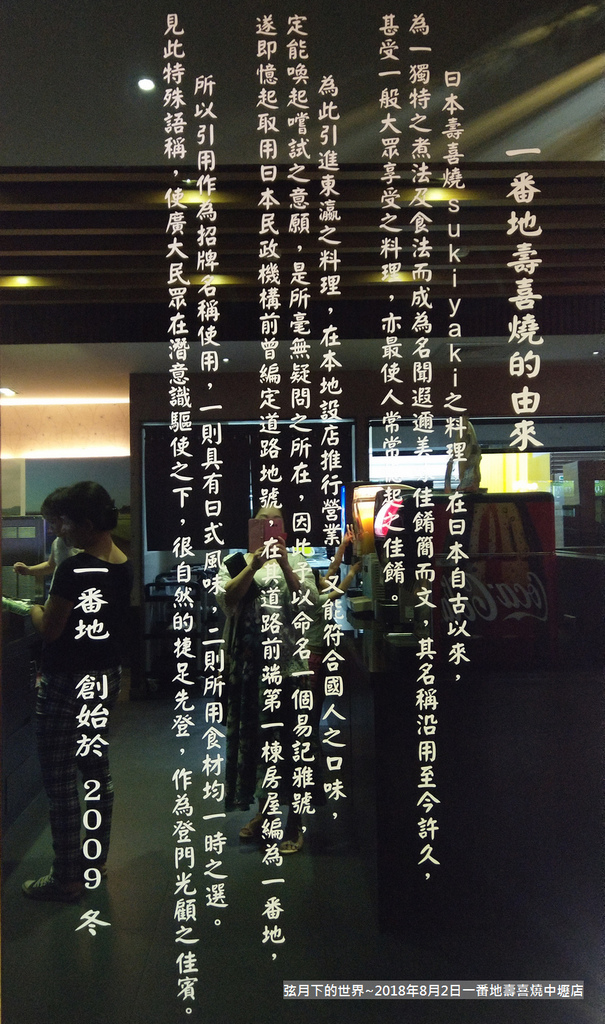 一番地壽喜燒的由來
日本壽喜燒sukiyaki之料理，在日本自古以來，
為一獨特之煮法及食法而成為名聞遐邇美，佳餚簡而文，其名稱沿用至今許久，
甚受一般大眾享受之料理，亦最使人常常起之佳餚。
為此引進東瀛之料理，在本地設店推行營業，又能符合國人之口味，
定能喚起嚐試之意願，是所毫無疑問之所在，因此予以命名一個易記雅號，
遂即憶起取用日本民政機構前曾編定道路地號，在其道路前端第一棟房屋編為一番地，
所以引用作為招牌名稱使用，一則具有日式風味，二則所用食材均一時之選。
見此特殊語稱，使廣大民眾在潛意識驅使之下，很自然的捷足先登，作為登門光顧之佳賓。
一番地 創始於 2009 冬
Coca-Cola
弦月下的世界~2018年8月2日一番地壽喜燒中壢店